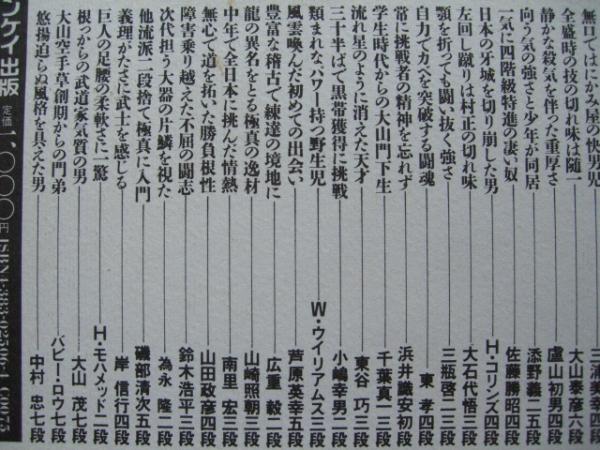 無口ではにかみ屋の快男児――三浦美幸四段
全盛時の技の切れ味は随一――大山泰彦六段
静かな殺気を伴った重厚さ――盧山初男四段
向う気の強さと少年が同居――添野義二五段
一気に四階級特進の凄い奴――佐藤勝昭四段
日本の牙城を切り崩した男――H・コリンズ四段
左回し蹴りは村正の切れ味――大石代悟三段
顎を折っても闘い抜く強さ――三瓶啓二二段
自力でカベを突破する闘魂――東 孝四段
常に挑戦者の精神を忘れず――浜井識安初段
学生時代からの大山門下生――千葉真一三段
流れ星のように消えた天才――東谷 巧三段
三十半ばで黒帯獲得に挑戦――小嶋幸男二段
類まれなパワー持つ野生児――W・ウイリアムス三段
風雲喚んだ初めての出会い――芦原英幸五段
豊富な稽古で錬達の境地に――広重 毅二段
龍の異名をとる極真の逸材――山崎照朝三段
中年で全日本に挑んだ情熱――南里 宏三段
無心で道を拓いた勝負根性――山田政彦四段
障害乗り越えた不屈の闘志――鈴木浩平三段
次代担う大器の片鱗を視た――為永 隆二段
他流派二段捨て極真に入門――磯部清次五段
義理がたさに武士を感じる――岸 信行四段
巨人の足腰の柔軟さに一驚――H・モハメッド二段
根っからの武道家気質の男――大山 茂七段
大山空手草創期からの門弟――バビー・ロウ七段
悠揚迫らぬ風格を具えた男――中村 忠七段
ンケイ出版 定価一、〇〇〇円